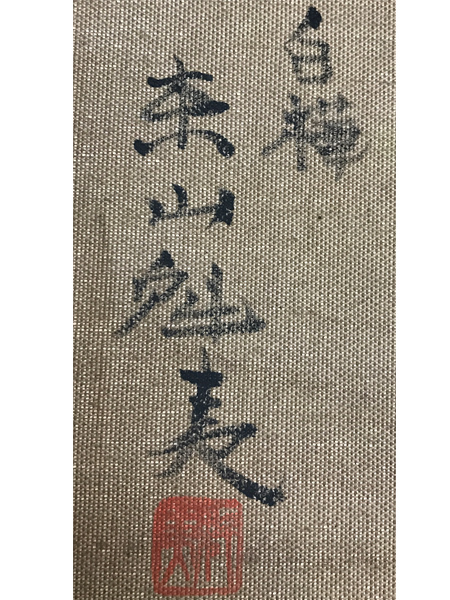 白樺
東山魁夷